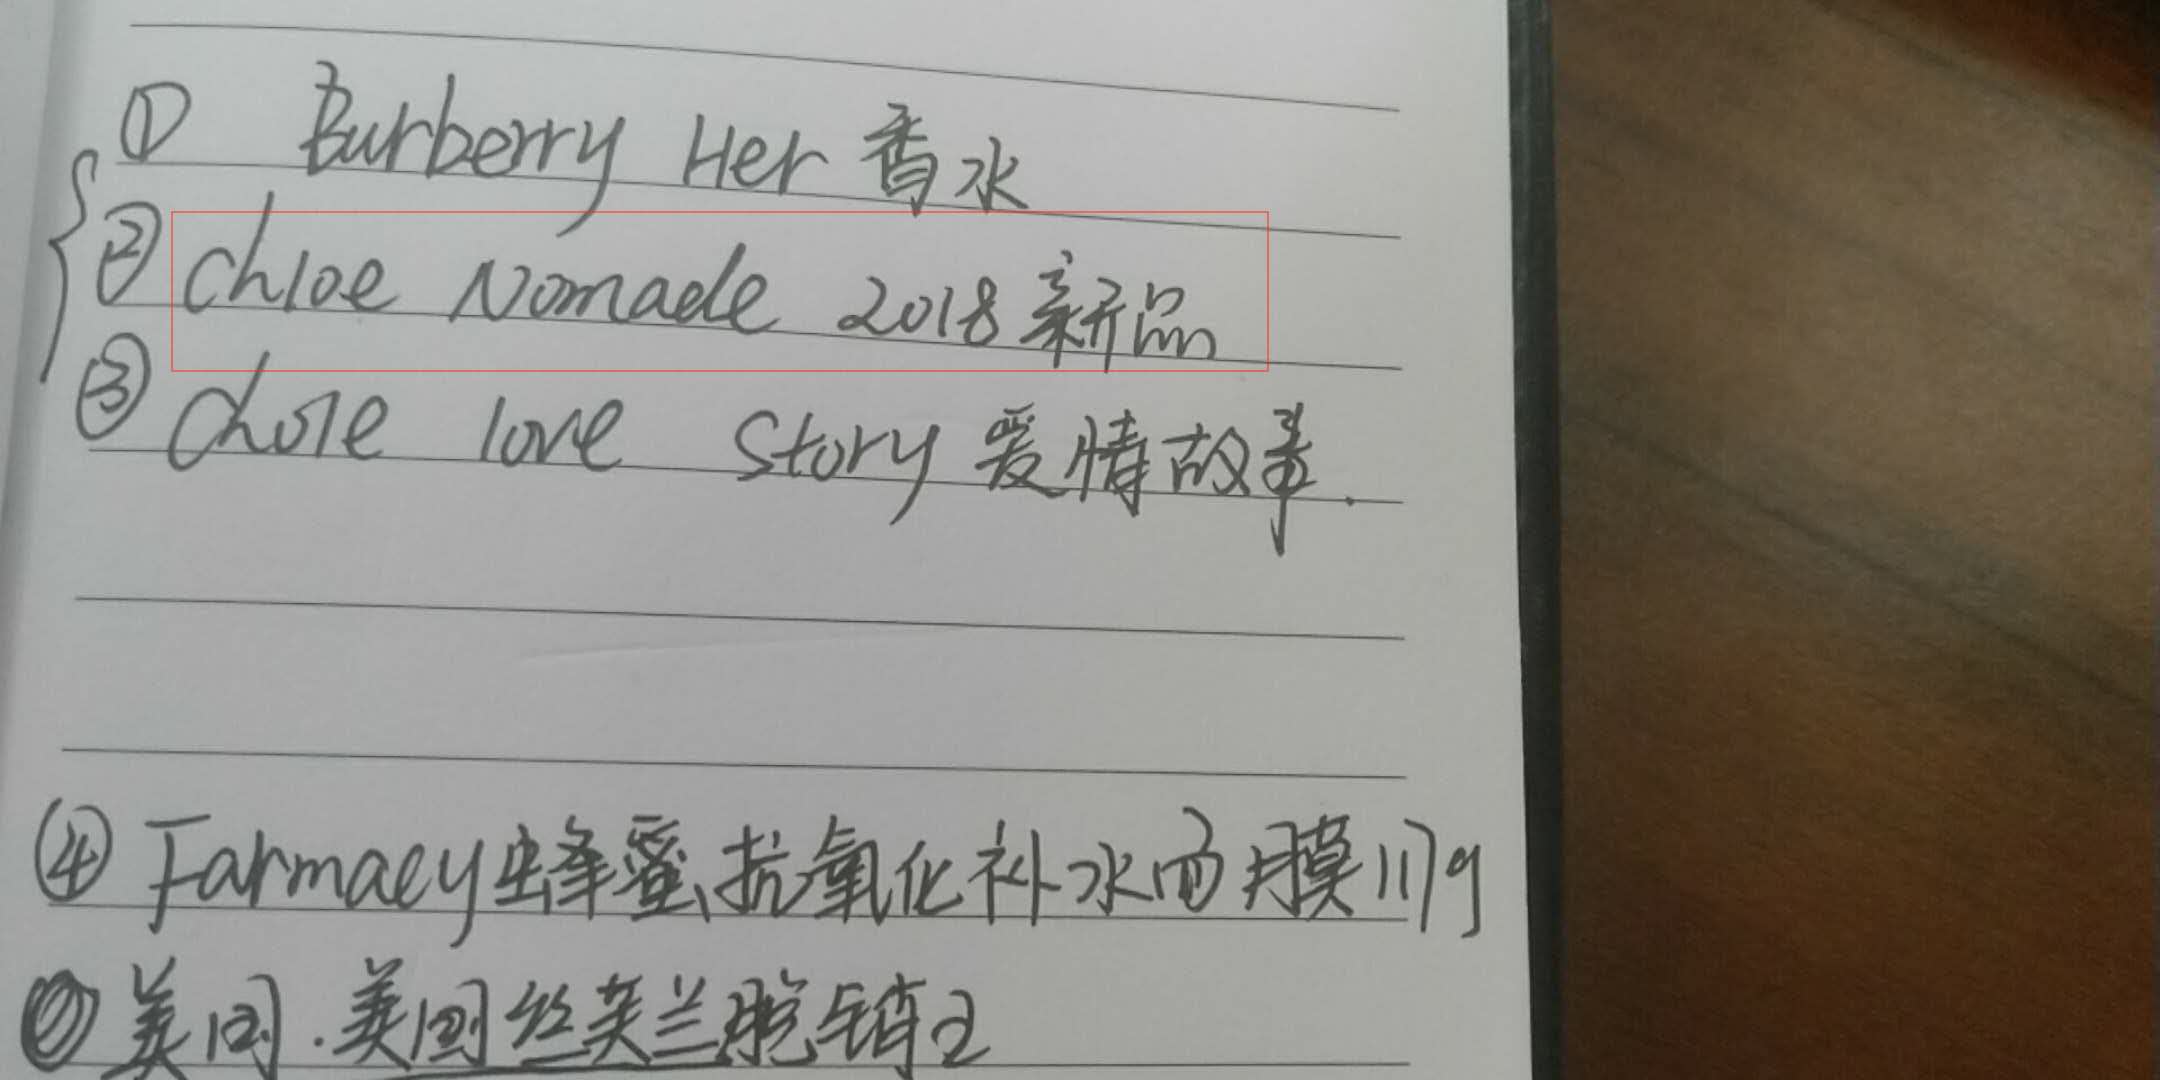 ① Burberry Her 香水
② Chloe Nomade 2018 新品
③ Chole love story 爱情故事.
④ Farmacy 蜂蜜、抗氧化补水面膜 117g
美国.美国丝芙兰脱销王